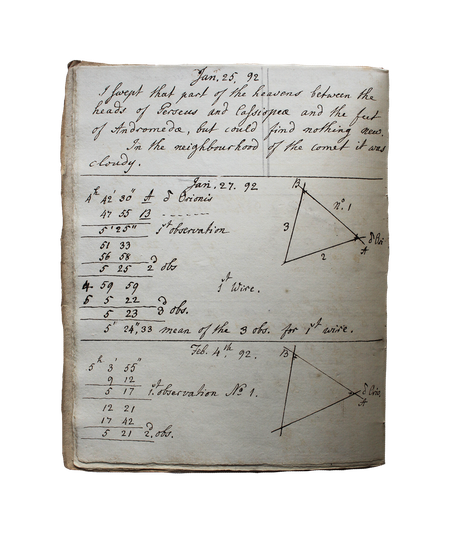 Jan. 25. 92
I swept that part of the heavens between the
heads of Perseus and Cassiopeæ and the feet
of Andromedæ, but could find nothing new.
In the neighbourhood of the comet it was
cloudy.
Jan. 27. 92
4h 42' 30" A δ Orionis
47 55 B
5' 25" 1st observation
51 33
56 58
5 25 2d obs
4 59 59
5 5 22
5 23 3d obs.
1st Wire.
5' 24",33 mean of the 3 obs. for 1st wire.
B
no. 1
3
2
δ Ori
A
Feb. 4th. 92.
5h 3' 55"
9 12
5 17 1st observation No 1.
12 21
17 42
5 21 2d. obs.
B
δ Orion
A